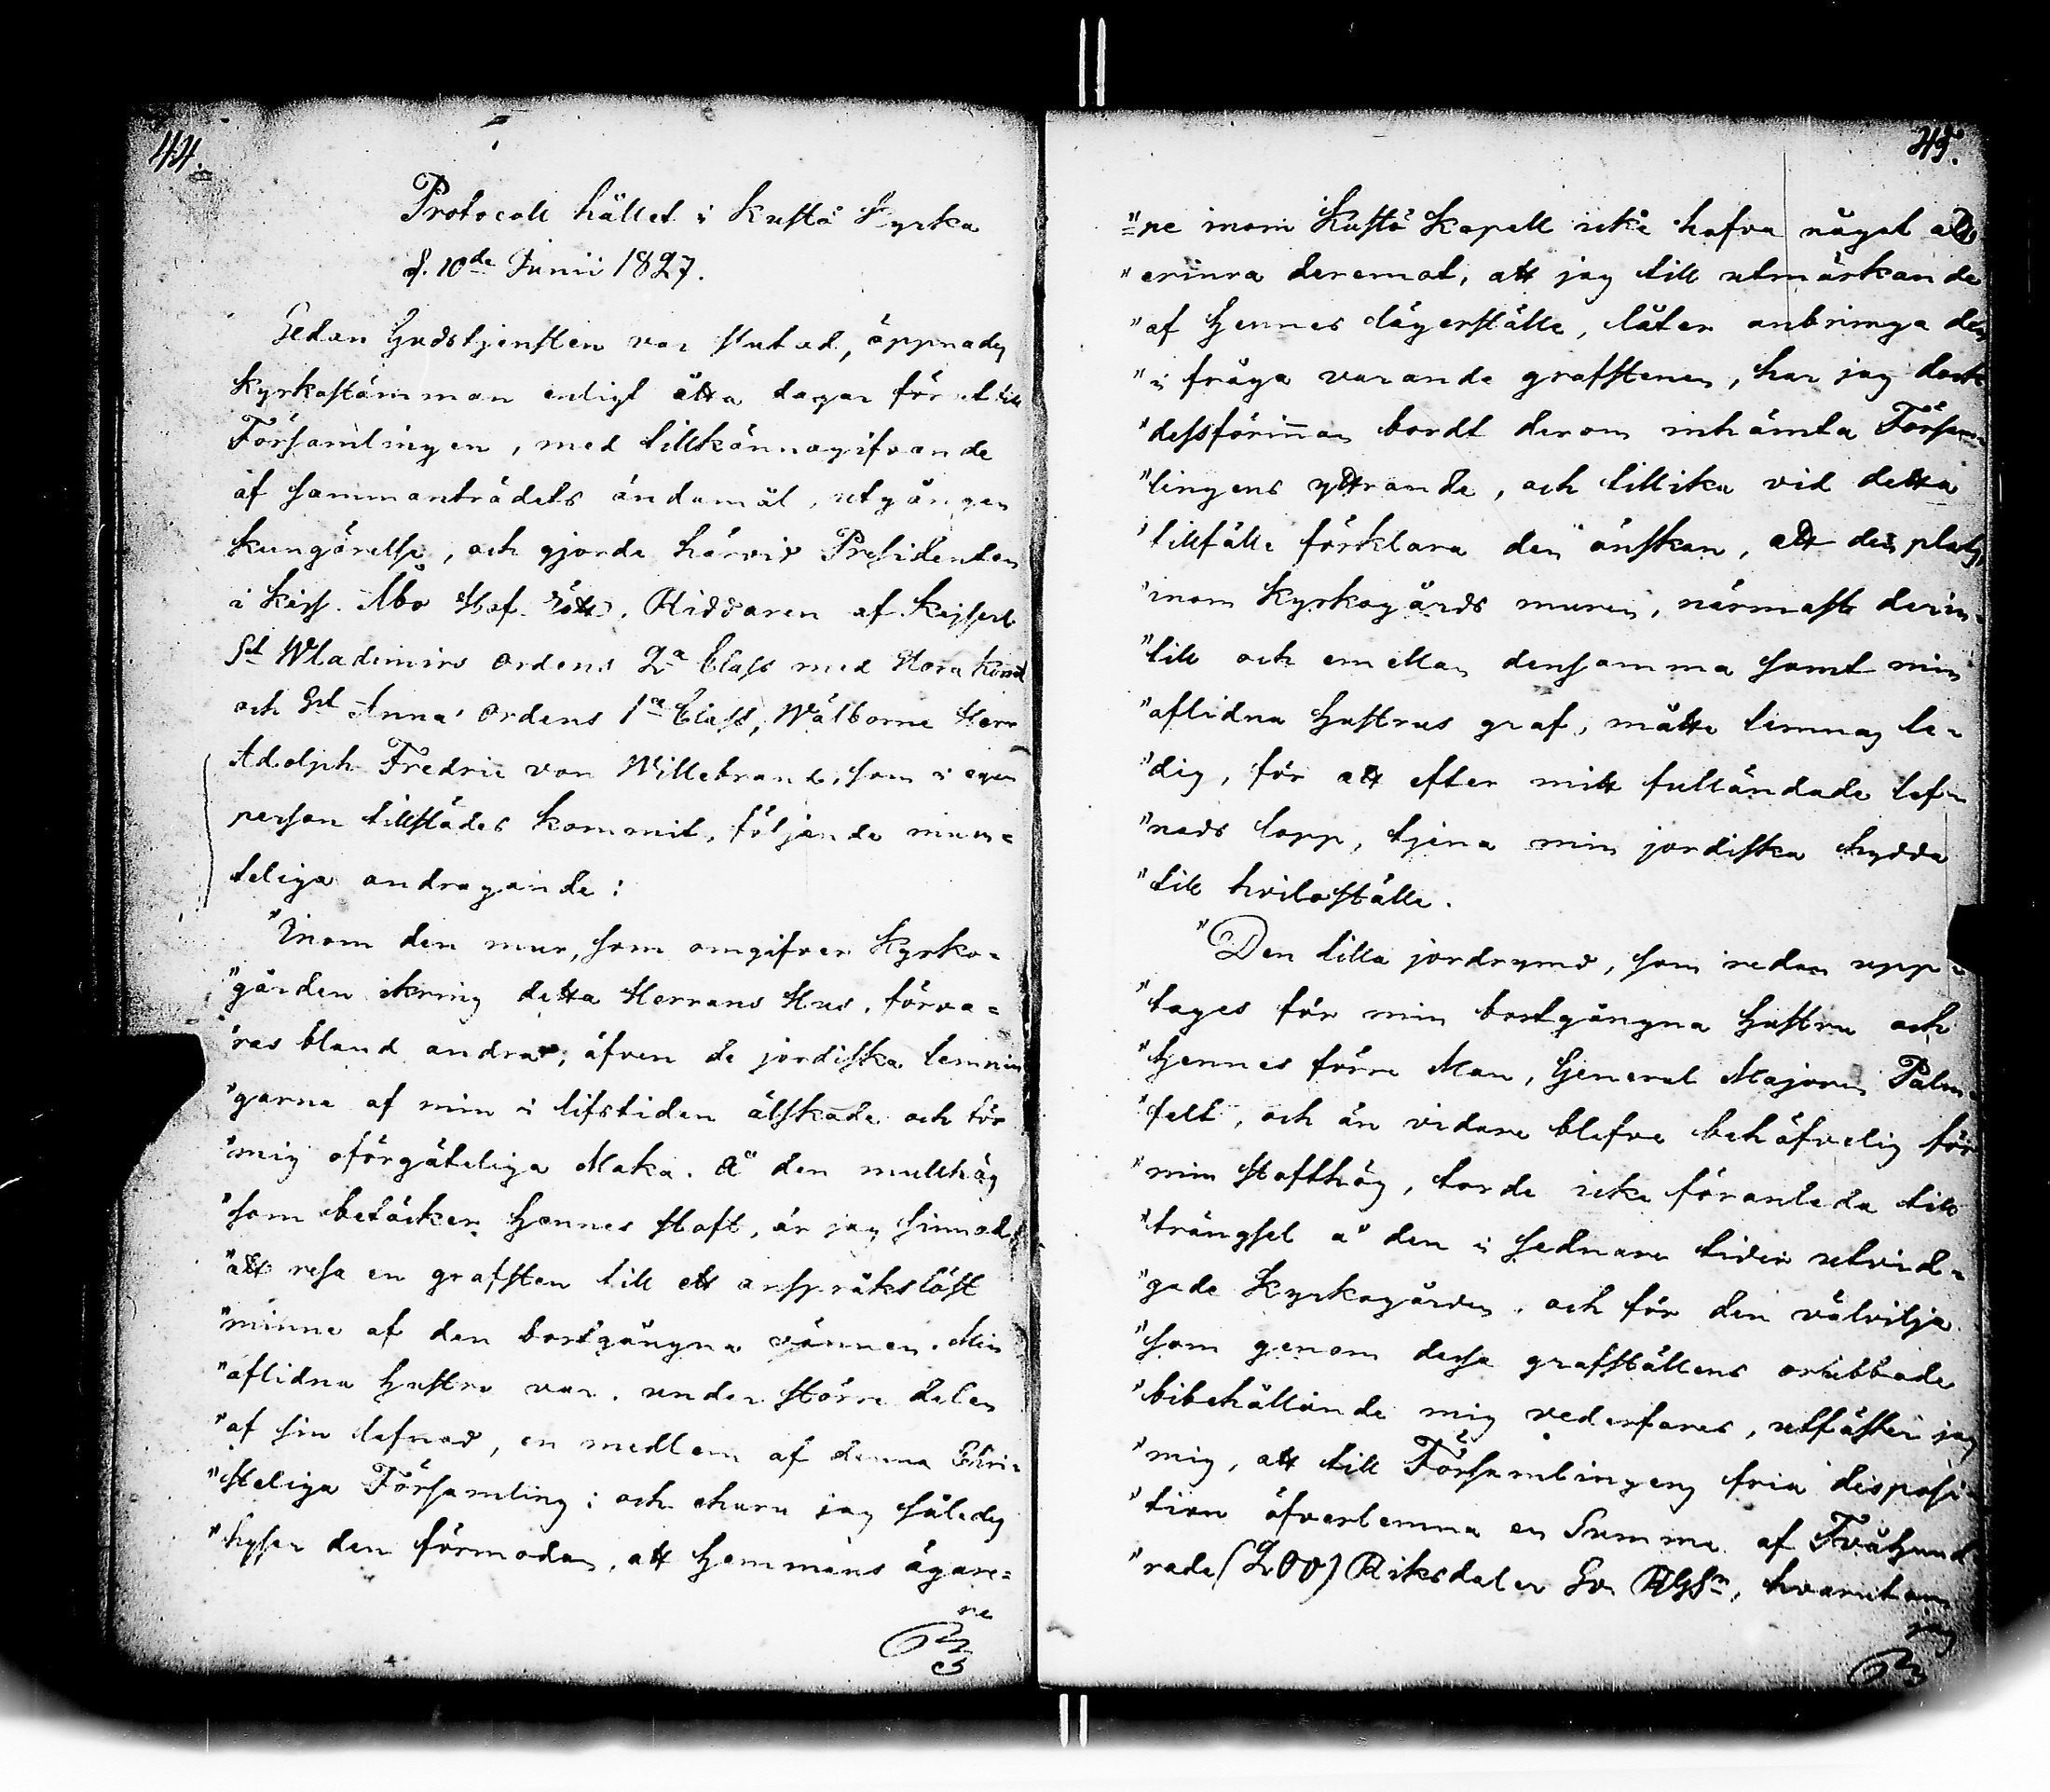 44.
Protocoll hållet i Kustö Kyrka
d. 10de Junii 1827.
Sedan Gudstjensten var slutad, öppnades
Kyrkostämman enligt åtta dagar förut till
Församlingen, med tillkännagifvande
af sammanträdets ändamål, utgången
kungörelse, och gjorde härvid Presidenten
i Kejs. Åbo Hof Rätt, Riddaren af Kejserl.
St Wladimirs Ordens 2a Class med Stora Korset
och St Anna Ordens 1a Class, Wälborne Herr
Adolph Fredric von Willebrand, som i egen
person tillstädes kommit, följande mun=
teliga andragande:
"Inom den mur, som omgifver Kyrko=
"gården ikring detta Herrans Hus, förva=
"ras bland andra, äfven de jordiska lemnin
"garne af min i lifstiden älskade och för
"mig oförgäteliga Maka. Å den mullhög
"som betäcker Hennes stoft, är jag sinnad
"att resa en grafsten till ett anspråkslöst
"minne af den bortgångna vännen. Min
"aflidna Hustru var, under större delen
"af sin lefnad, en medlem af denna Chri=
"steliga Församling; och churu jag således
"hyser den förmodan, att Hemmans ägare=
ne
45.
"ne inom Kustö Kapell icke hafva något att
"erinra deremot, att jag till utmärkande
"af Hennes lägerställe, låter anbringa den
"i fråga varande grafstenen, har jag dock
"dessförinnan bordt derom inhämta Försam
"lingens yttrande, och tillika vid detta
"tillfälle förklara den önskan, att den plats,
"inom Kyrkogårds muren, närmast derin=
"till och emellan densamma samt min
"aflidna Hustrus graf, måtte lemnas le=
"dig, för att efter mitt fulländade lef=
"nads lopp, tjena min jordiska hydda
"till hviloställe.
"Den lilla jordrymd, som redan upp=
"tages för min bortgångna Hustru och
"Hennes förre Man, General Majoren Palm
"felt, och än vidare blefve behöfvelig för
"min stofthög, torde icke föranleda till
"trängsel å den i sednare tider utvid=
"gade Kyrkogården, och för den välvilja
"som genom dessa grafställens orubbade
"bibehållande mig vederfares, utfäster jag
"mig, att till Församlingens fria disposi
"tion öfverlemna en Summa af Tvåhund
"rade (200) Riksdaler Sv. RGSn, hvarutom
jag